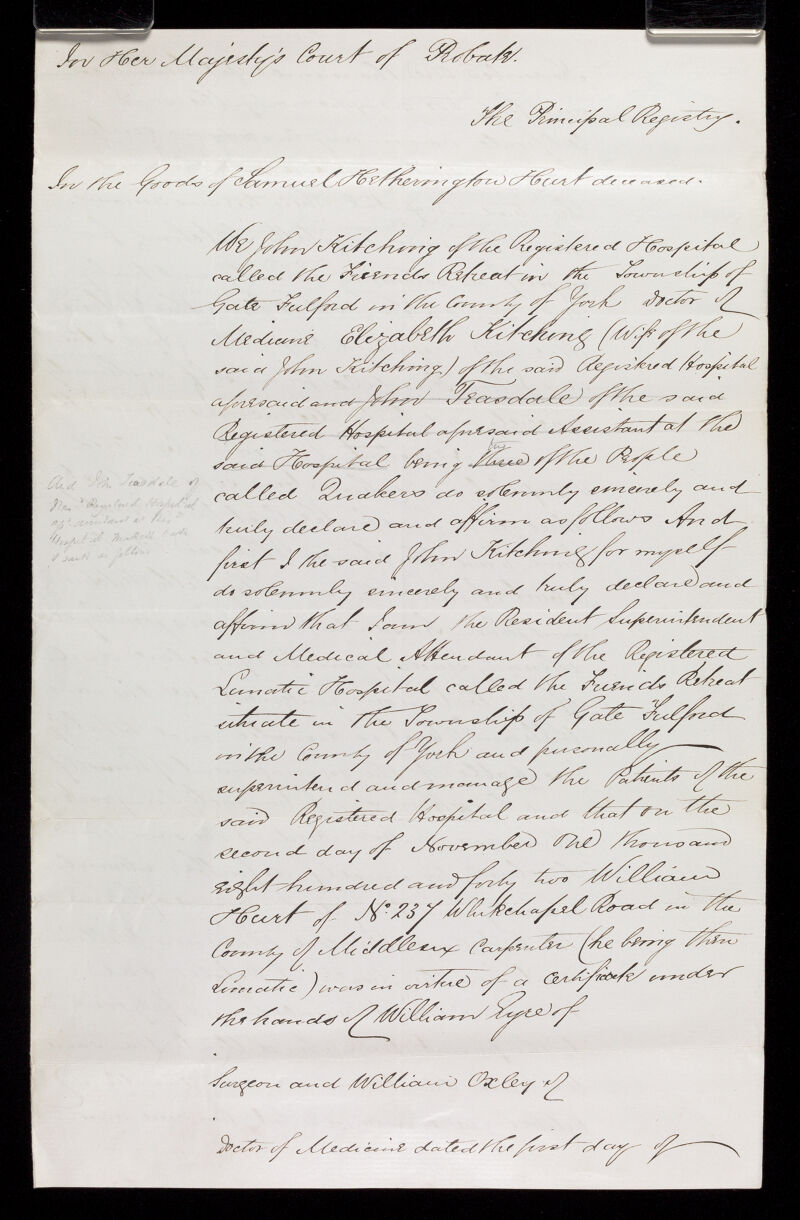 In Her Majesty's Court of Probate.
The Principal Registry.
In the Goods of Samuel Hetherington Hurt deceased.
We John Kitching of the Registered Hospital
called the Friends Retreat in the Township of
Gate Fulford in the County of York Doctor of
Medicine Elizabeth Kitching (Wife of the
said John Kitching) of the said Registered Hospital
aforesaid and John Teasdale of the said
Registered Hospital aforesaid Assistant at the
said Hospital being three of the People
called Quakers do solemnly sincerely and
truly declare and affirm as follows And
first I the said John Kitching for myself
do solemnly sincerely and truly declare and
affirm that I am the Resident Superintendent
and Medical Attendant of the Registered
Lunatic Hospital called the Friends Retreat
situate in the Township of Gate Fulford
in the County of York and personally
superintend and manage the Patients of the
said Registered Hospital and that on the
second day of November One thousand
eight hundred and forty two William
Hurt of No. 237 Whitechapel Road in the
County of Middlesex Carpenter (he being then
Lunatic) was in virtue of a certificate under
the hands of William Eyre of
Surgeon and William Oxley of
Doctor of Medicine dated the first day of
And John Teasdale of
Hospital
assistant at the
Hospital make oath
& saith as follows